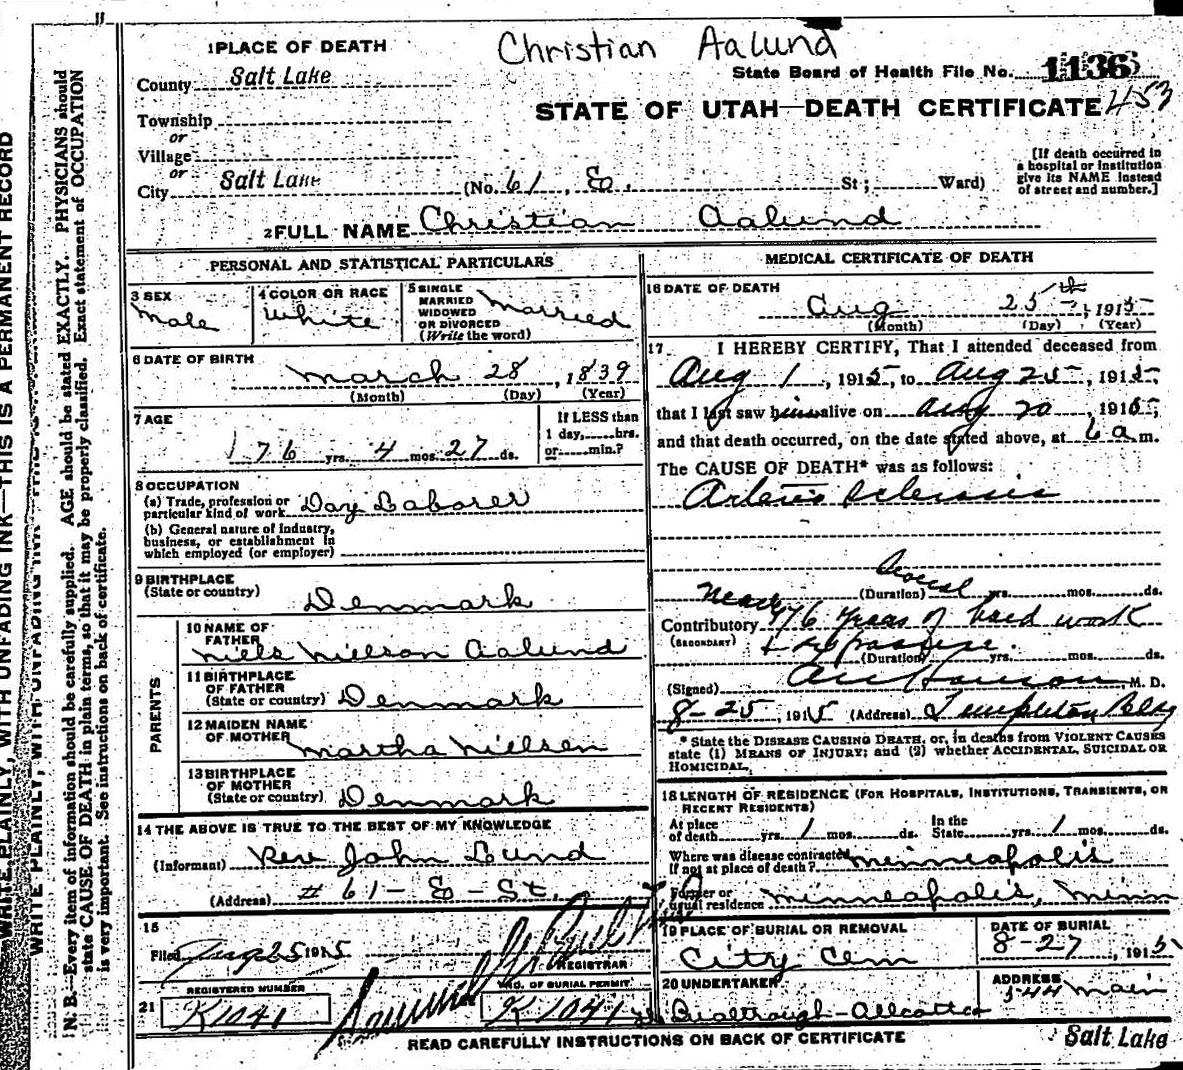 Christian Aalund
1 PLACE OF DEATH
County Salt Lake
State Board of Health File No. 1136
STATE OF UTAH—DEATH CERTIFICATE 453
Township
or
Village
or
City Salt Lake (No. 61, E. St; Ward)
[If death occurred in
a hospital or institution
give its NAME instead
of street and number.]
2 FULL NAME Christian Aalund
PERSONAL AND STATISTICAL PARTICULARS
3 SEX
Male
4 COLOR OR RACE
White
5 SINGLE
MARRIED
WIDOWED
OR DIVORCED
(Write the word)
Married
6 DATE OF BIRTH
March 28, 1839
(Month) (Day) (Year)
7 AGE
76 yrs. 4 mos. 27 ds.
If LESS than
1 day,.....hrs.
or.....min.?
8 OCCUPATION
(a) Trade, profession or
particular kind of work Day Laborer
(b) General nature of industry,
business, or establishment in
which employed (or employer)
9 BIRTHPLACE
(State or country)
Denmark
PARENTS
10 NAME OF
FATHER
Niels Nielson Aalund
11 BIRTHPLACE
OF FATHER
(State or country) Denmark
12 MAIDEN NAME
OF MOTHER
Martha Nielsen
13 BIRTHPLACE
OF MOTHER
(State or country) Denmark
14 THE ABOVE IS TRUE TO THE BEST OF MY KNOWLEDGE
(Informant) Rev John Lund
(Address) # 61 - E - St.
15
Filed Aug 25 1915
REGISTRAR
21 REGISTERED NUMBER
K1041
NO. OF BURIAL PERMIT
K1041
MEDICAL CERTIFICATE OF DEATH
16 DATE OF DEATH
Aug 25th, 1915
(Month) (Day) (Year)
17 I HEREBY CERTIFY, That I attended deceased from
Aug 1, 1915, to Aug 25, 1915,
that I last saw him alive on Aug 20, 1915,
and that death occurred, on the date stated above, at 6 a m.
The CAUSE OF DEATH* was as follows:
Arterio Sclerosis
(Duration) Several yrs. mos. ds.
Contributory Nearly 76 years of hard work
(SECONDARY)
& exposure.
(Duration) yrs. mos. ds.
(Signed) M. D.
8-25, 1915 (Address) Templeton Bldg
* State the DISEASE CAUSING DEATH, or, in deaths from VIOLENT CAUSES
state (1) MEANS OF INJURY; and (2) whether ACCIDENTAL, SUICIDAL OR
HOMICIDAL.
18 LENGTH OF RESIDENCE (FOR HOSPITALS, INSTITUTIONS, TRANSIENTS, OR
RECENT RESIDENTS)
At place
of death yrs. 1 mos. ds.
In the
State yrs. 1 mos. ds.
Where was disease contracted
if not at place of death? Minneapolis
Former or
usual residence Minneapolis, Minn
19 PLACE OF BURIAL OR REMOVAL
City Cem
DATE OF BURIAL
8-27, 1915
20 UNDERTAKER
ADDRESS
544 Main
READ CAREFULLY INSTRUCTIONS ON BACK OF CERTIFICATE
Salt Lake
WRITE PLAINLY, WITH UNFADING INK—THIS IS A PERMANENT RECORD
N. B.—Every item of information should be carefully supplied. AGE should be stated EXACTLY. PHYSICIANS should
state CAUSE OF DEATH in plain terms, so that it may be properly classified. Exact statement of OCCUPATION
is very important. See instructions on back of certificate.